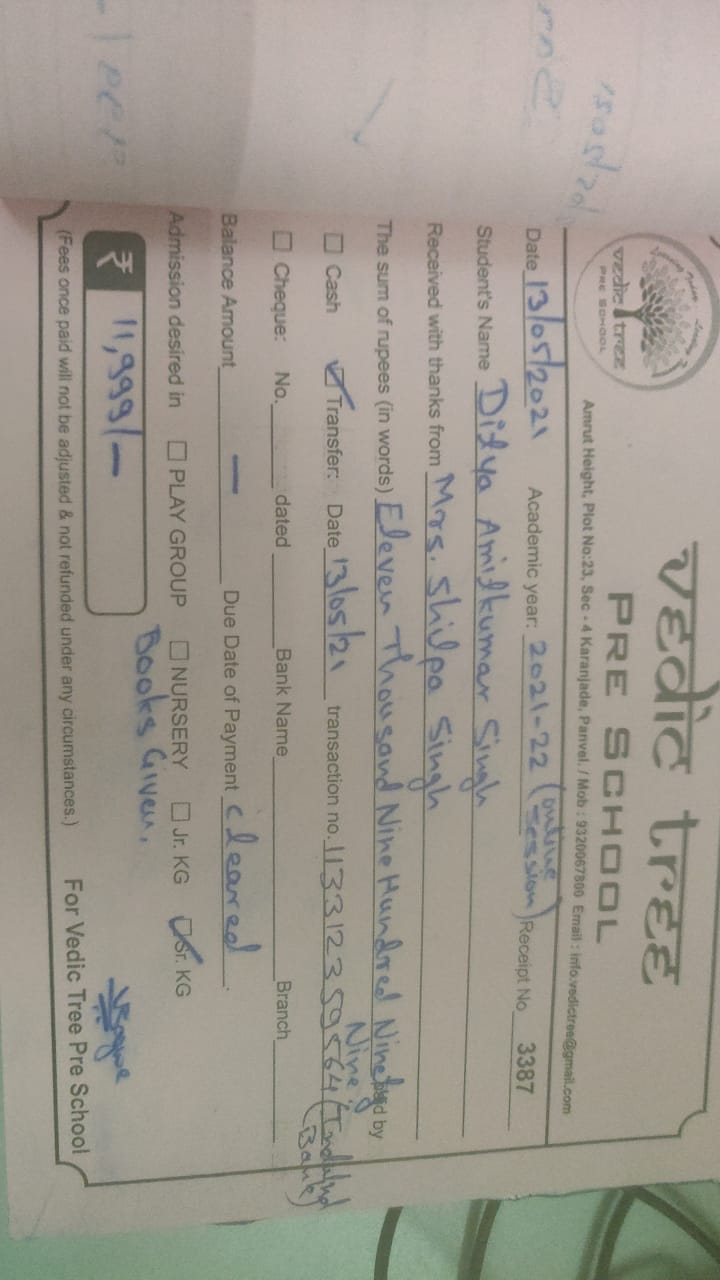 vedic tree
PRE SCHOOL
vedic tree
PRE SCHOOL
Amrut Height, Plot No:23, Sec - 4 Karanjade, Panvel. / Mob : 9320067800 Email : info.vedictree@gmail.com
Date 13/05/2021 Academic year: 2021-22 (online session) Receipt No 3387
Student's Name Ditya Amitkumar Singh
Received with thanks from Mrs. Shilpa Singh
The sum of rupees (in words) Eleven Thousand Nine Hundred Ninety Nine paid by
☐ Cash ☑ Transfer: Date 13/05/21 transaction no. 113312359564 (IndusInd Bank)
☐ Cheque: No. dated Bank Name Branch
Balance Amount — Due Date of Payment cleared.
Admission desired in ☐ PLAY GROUP ☐ NURSERY ☐ Jr. KG ☑ Sr. KG
₹ 11,999/-
Books Given.
(Fees once paid will not be adjusted & not refunded under any circumstances.) For Vedic Tree Pre School